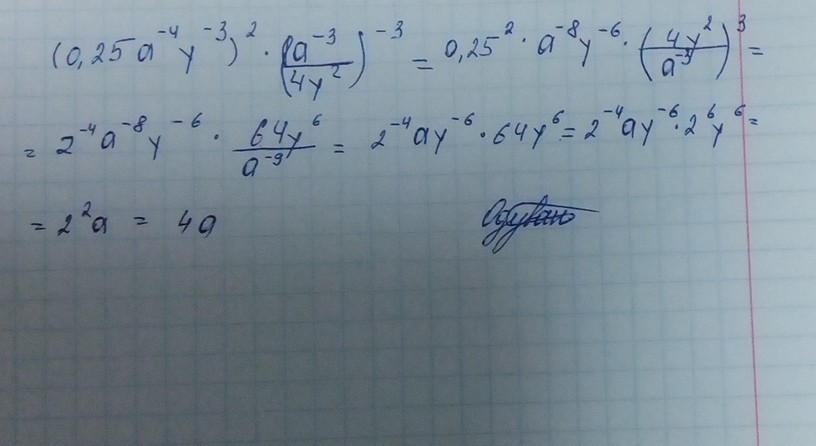 (0,25a⁻⁴y⁻³)² · (a⁻³/4y²)⁻³ = 0,25² · a⁻⁸y⁻⁶ · (4y²/a⁻³)³ =
= 2⁻⁴a⁻⁸y⁻⁶ · 64y⁶/a⁻⁹ = 2⁻⁴ay⁻⁶ · 64y⁶ = 2⁻⁴ay⁻⁶ · 2⁶y⁶ =
= 2²a = 4a